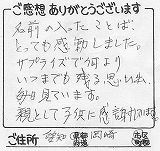 ご感想 ありがとうございます
名前の入った ことば、
とっても感動しました。
サプライズで何より
いつまでも残る思い出、
毎日見ています。
親として子供に感謝です
ご住所 愛知 都道府県 岡崎 市区町村